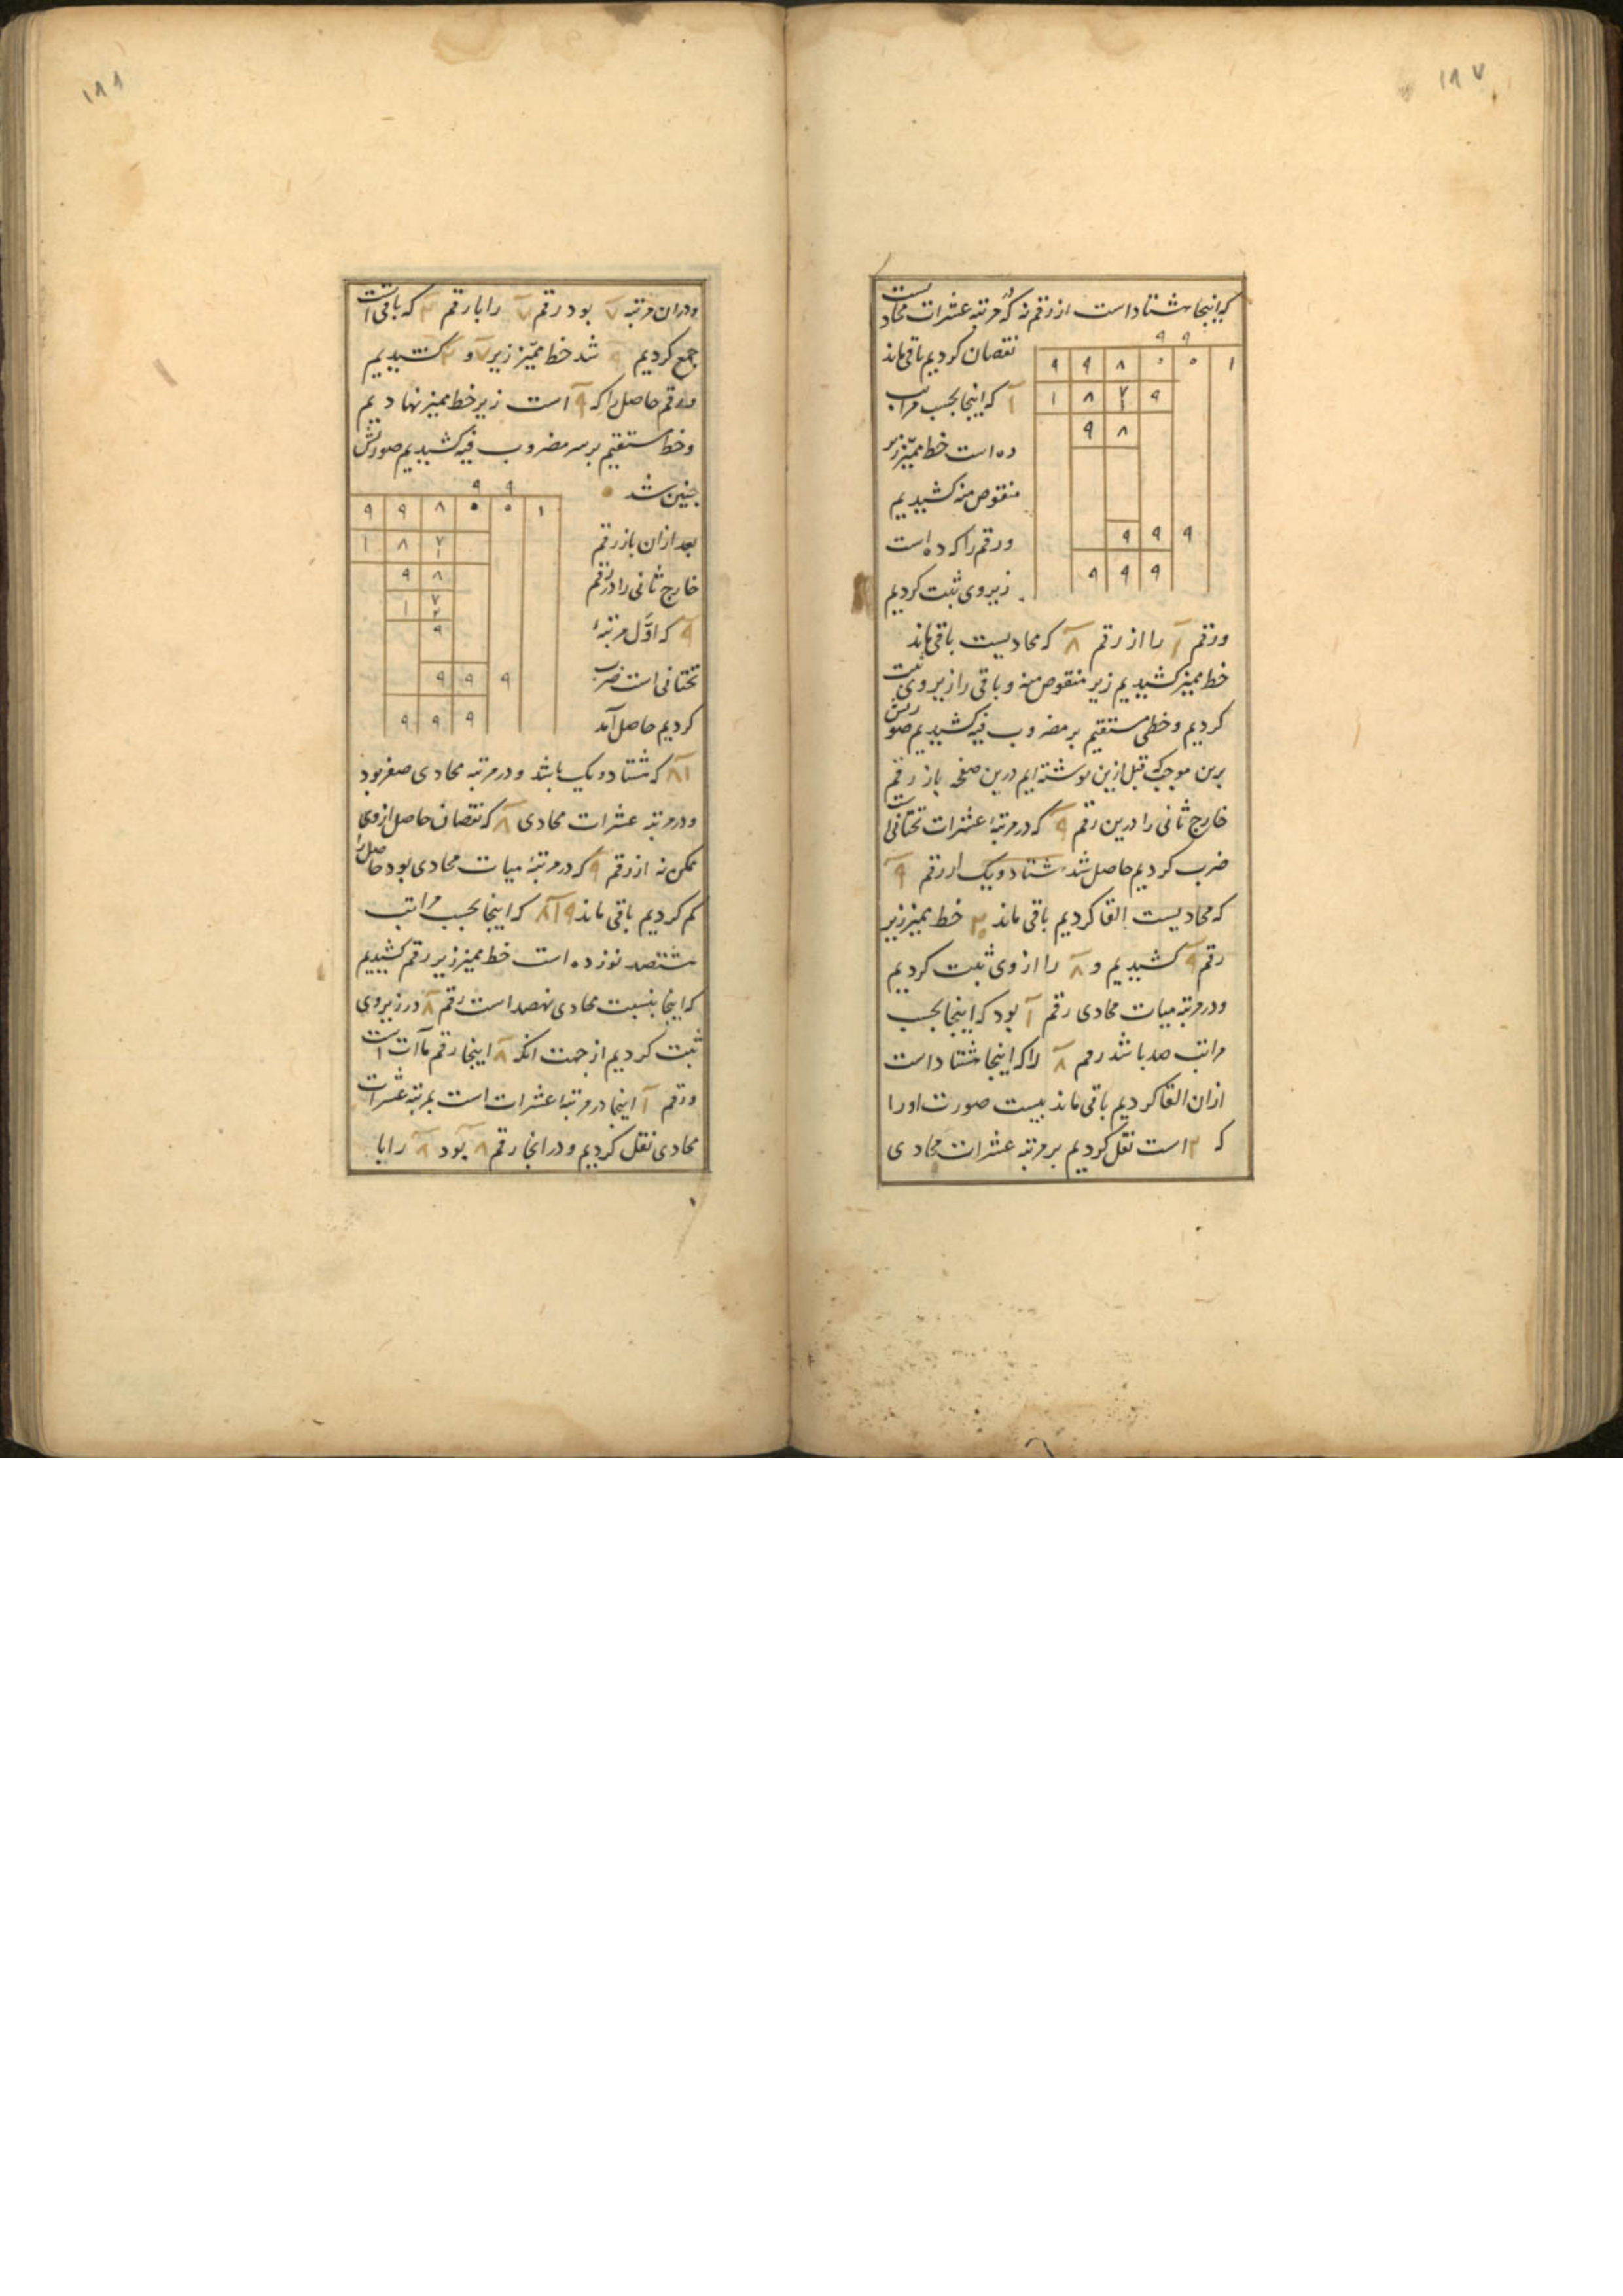 ۱۸۷
که اینجا هشتاد است از رقم نه که در مرتبه عشرات محاد یست
۹ ۹
نقصان کردیم باقی ماند
۹ ۹ ۸ ۰ ۰ ۱
۱ که اینجا بحسب مراتب
۱ ۸ ۷ ۹
۱
۹ ۸
ده است خط ممیّز زیر
منقوص منه کشیدیم
ورقم را که ده است
۹ ۹ ۹
زیر وی ثبت کردیم
۹ ۹ ۹
ورقم ۱ را از رقم ۸ که محادیست باقی ماند
خط ممیز کشیدیم زیر منقوص منه و باقی را زیر وی ثبت
کردیم و خطی مستقیم بر مضروب فیه کشیدیم صورتش
برین موجب که قبل ازین نوشته ایم درین صفحه باز رقم
خارج ثانی را درین رقم ۹ که در مرتبهٔ عشرات تحتانی است
ضرب کردیم حاصل شد هشتاد و یک از رقم ۹
که محادیست القا کردیم باقی ماند خط ممیز زیر
رقم ۹ کشیدیم و ۸ را از وی ثبت کردیم
ودر مرتبه میات محادی رقم ۱ بود که اینجا بحسب
مراتب صد باشد رقم ۸ را که اینجا هشتاد است
ازان القا کردیم باقی ماند بیست صورت او را
که ۲ است نقل کردیم بر مرتبه عشرات محادی
۱۸۸
ودران مرتبه ۷ بود رقم ۷ را با رقم ۲ که باقی است
جمع کردیم ۹ شد خط ممیّز زیر ۷ و ۲ کشیدیم
ورقم حاصل را که ۹ است زیر خط ممیز نهادیم
وخط مستقیم بر سر مضروب فیه کشیدیم صورتش
چنین شد
۹ ۹
۹ ۹ ۸ ۰ ۰ ۱
بعد ازان باز رقم
۱ ۸ ۷
۱
خارج ثانی را در رقم
۹ ۸
۱ ۷
۲
۹ که اوّل مرتبهٔ
۹
تحتانی است ضرب
۹ ۹ ۹
کردیم حاصل آمد
۹ ۹ ۹
۸۱ که هشتاد و یک باشد ودر مرتبه محادی صفر بود
ودر مرتبه عشرات محادی ۸ که نقصان حاصل از وی
ممکن نه از رقم ۹ که در مرتبهٔ میات محادی بود حاصل را
کم کردیم باقی ماند ۸۱۹ که اینجا بحسب مراتب
هشتصد نوزده است خط ممیز زیر رقم کشیدیم
که اینجا بنسبت محادی نهصد است رقم ۸ در زیر وی
ثبت کردیم از جهت آنکه ۸ اینجا رقم مآت است
ورقم ۱ اینجا در مرتبهٔ عشرات است بمرتبه عشرات
محادی نقل کردیم ودر انجا رقم ۸ بود ۸ را با